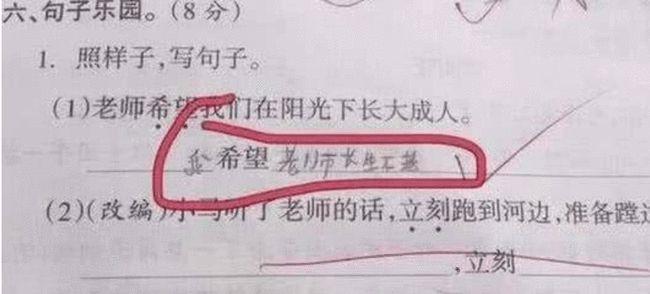 六、句子乐园。(8分)
1. 照样子,写句子。
(1)老师希望我们在阳光下长大成人。
希望 老师长生不老
(2)(改编)小马听了老师的话,立刻跑到河边,准备蹚
,立刻